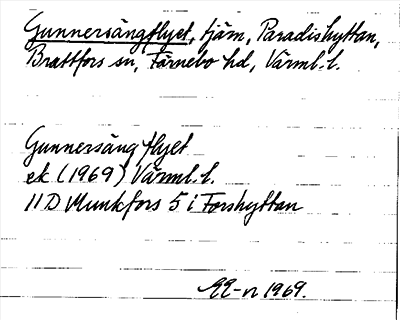 Gunnersängflyet, tjärn, Paradishyttan,
Brattfors sn, Färnebo hd, Värml. l.
Gunnersäng flyet
ek (1969) Värml. l.
11D Munkfors 5 i Forshyttan
EE-n 1969.